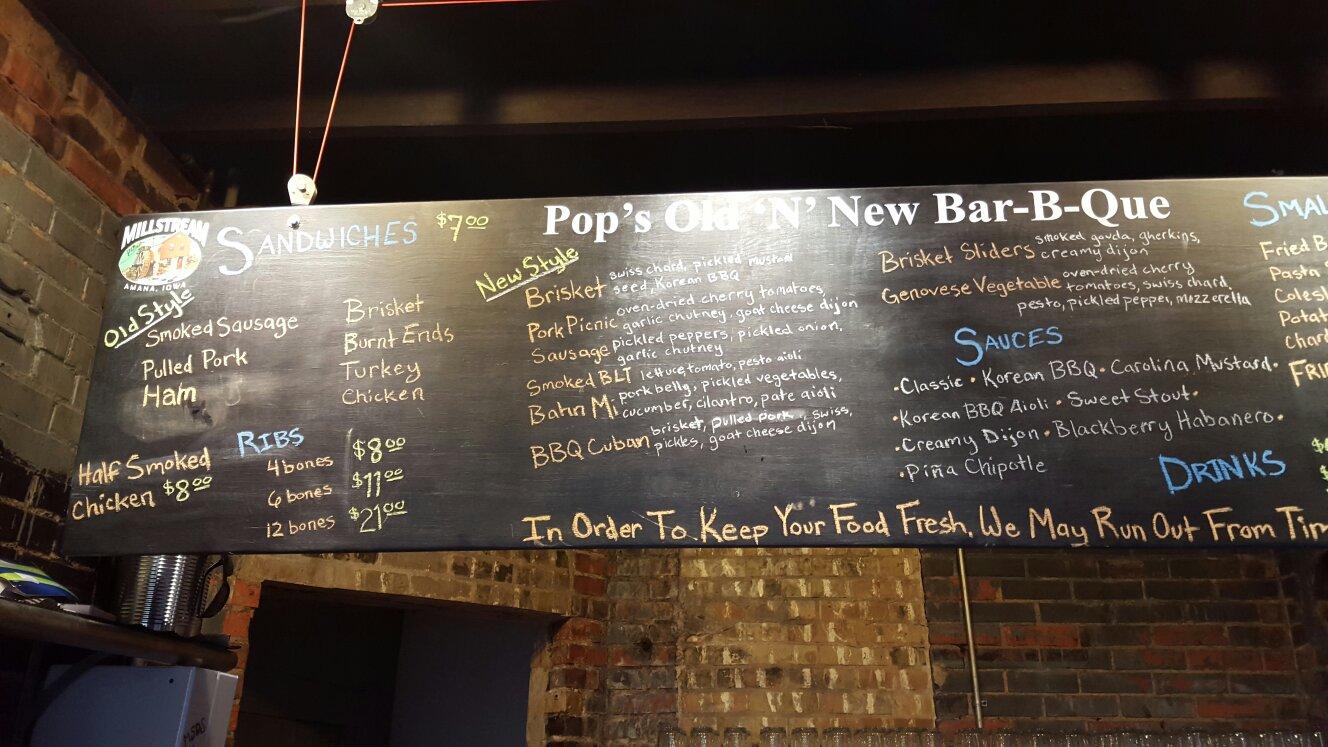 MILLSTREAM
AMANA, IOWA
SANDWICHES $7.00
Old Style
Smoked Sausage
Pulled Pork
Ham
Brisket
Burnt Ends
Turkey
Chicken
RIBS
Half Smoked
Chicken $8.00
4 bones $8.00
6 bones $11.00
12 bones $21.00
Pop's Old 'N' New Bar-B-Que
New Style
Brisket swiss chard, pickled mustard
seed, Korean BBQ
Pork Picnic oven-dried cherry tomatoes,
garlic chutney, goat cheese dijon
Sausage pickled peppers, pickled onion,
garlic chutney
Smoked BLT lettuce, tomato, pesto aioli
Bahn Mi pork belly, pickled vegetables,
cucumber, cilantro, pate aioli
BBQ Cuban brisket, pulled pork, swiss,
pickles, goat cheese dijon
Brisket Sliders smoked gouda, gherkins,
creamy dijon
Genovese Vegetable oven-dried cherry
tomatoes, swiss chard,
pesto, pickled pepper, mozzerella
SAUCES
•Classic • Korean BBQ • Carolina Mustard•
•Korean BBQ Aioli • Sweet Stout•
•Creamy Dijon • Blackberry Habanero•
•Piña Chipotle
DRINKS
SMAL
Fried B
Pasta
Colesl
Potat
Char
FRI
In Order To Keep Your Food Fresh, We May Run Out From Tim